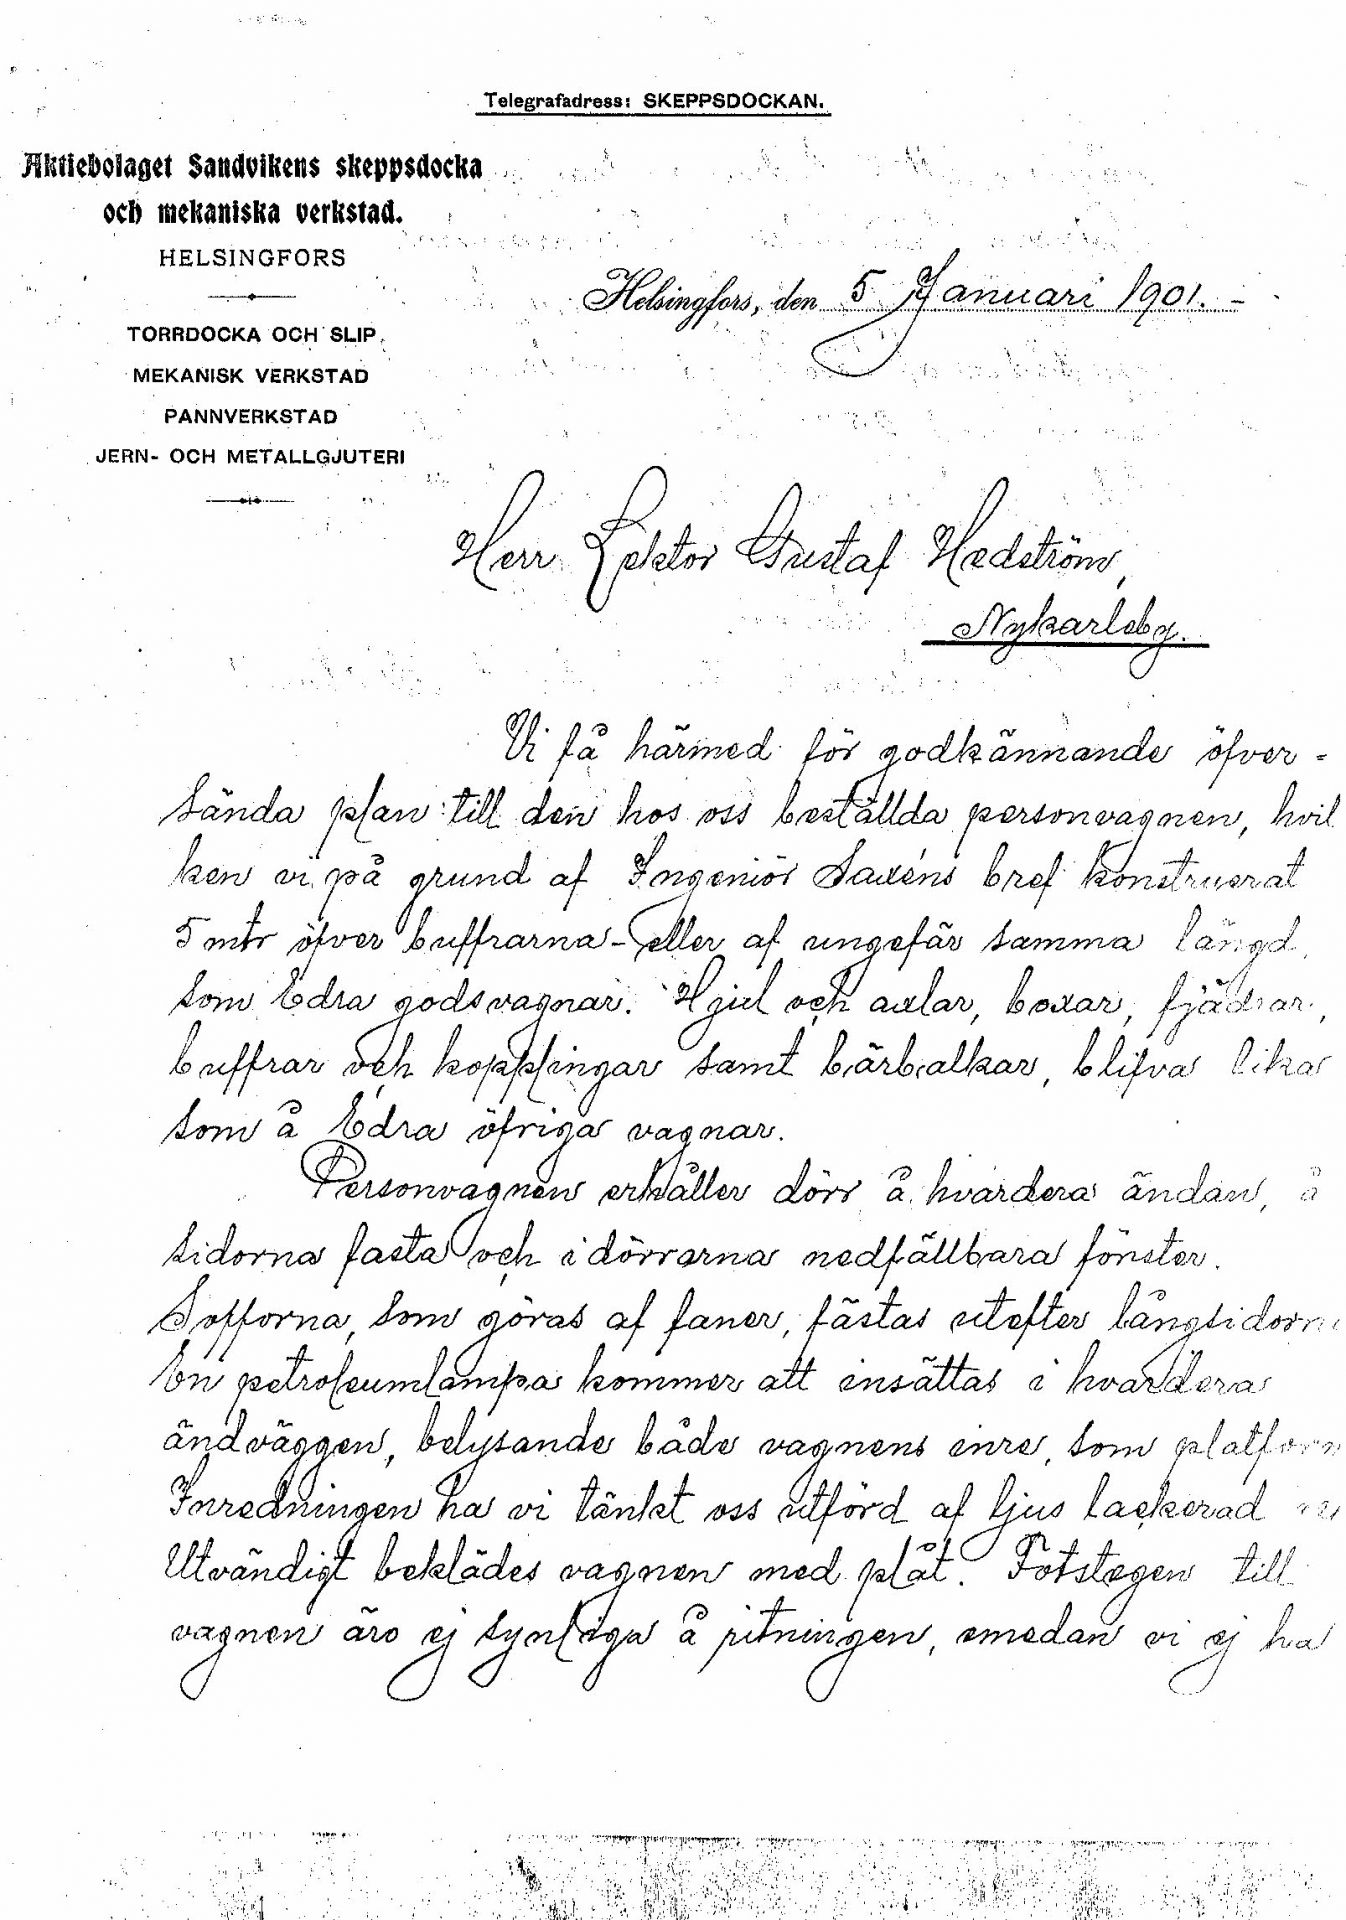 Telegrafadress: SKEPPSDOCKAN.
Aktiebolaget Sandvikens skeppsdocka
och mekaniska verkstad.
HELSINGFORS
TORRDOCKA OCH SLIP
MEKANISK VERKSTAD
PANNVERKSTAD
JERN- OCH METALLGJUTERI
Helsingfors, den 5 Januari 1901.-
Herr Lektor Gustaf Hedström,
Nykarleby.
Vi få härmed för godkännande öfver-
sända plan till den hos oss beställda personvagnen, hvil
ken vi på grund af Ingeniör Saxéns bref konstruerat
5 mtr öfver buffrarna - eller af ungefär samma längd
som Edra godsvagnar. Hjul och axlar, boxar, fjädrar,
buffrar och kopplingar samt bärbalkar, blifva lika
som å Edra öfriga vagnar.
Personvagnen erhåller dörr å hvardera ändan, å
sidorna fasta och i dörrarna nedfällbara fönster.
Sofforna, som göras af faner, fästas utefter långsidorna
En petroleumlampa kommer att insättas i hvardera
ändväggen, belysande både vagnens inre, som platform
Inredningen ha vi tänkt oss utförd af ljus lackerad
Utvändigt beklädes vagnen med plåt. Fotstegen till
vagnen äro ej synliga å ritningen, emedan vi ej ha